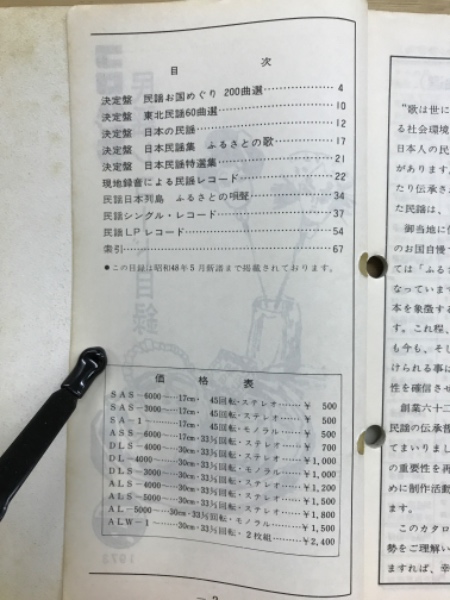 目 次
決定盤 民謡お国めぐり 200曲選……………4
決定盤 東北民謡60曲選……………10
決定盤 日本の民謡……………12
決定盤 日本民謡集 ふるさとの歌……………17
決定盤 日本民謡特選集……………21
現地録音による民謡レコード……………22
民謡日本列島 ふるさとの唄聲……………34
民謡シングル・レコード……………37
民謡LPレコード……………54
索引……………67
●この目録は昭和48年5月新譜まで掲載されております。
価 格 表
SAS-6000……17cm・45回転・ステレオ……¥ 500
SAS-……17cm・45回転・ステレオ……¥ 500
SA-1……17cm・45回転・モノラル……¥ 500
ASS-6000……17cm・33⅓回転・ステレオ……¥ 700
DLS-4000……30cm・33⅓回転・ステレオ……¥1,000
DL-4000……30cm・33⅓回転・モノラル……¥1,000
DLS-3000……30cm・33⅓回転・ステレオ……¥1,200
ALS-4000……30cm・33⅓回転・ステレオ……¥1,500
ALS-5000……30cm・33⅓回転・ステレオ……¥1,800
AL-5000……30cm・33⅓回転・モノラル……¥1,500
ALW-1……30cm・33⅓回転・2枚組……¥2,400
"歌は世に
る社会環境
日本人の民
があります。
たり伝承さ
た民謡は、
御当地に伝
のお国自慢
ては「ふる
なっていま
本を象徴す
す。これ程、
も今も、そし
けられる事に
性を確信させ
創業六十二
民謡の伝承普
てまいりまし
の重要性を再
めに制作活動
ます。
このカタロ
勢をご理解い
ますれば、幸